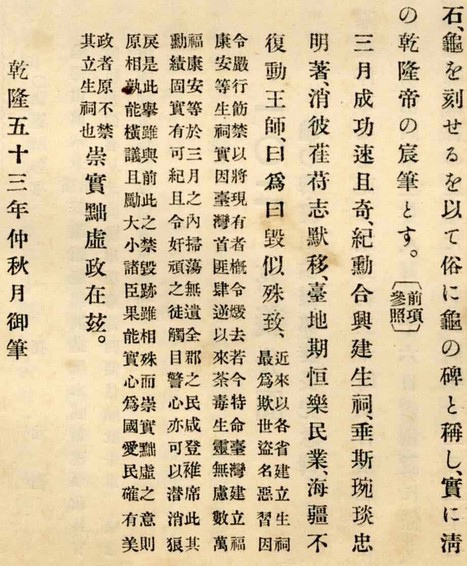 石、龜を刻せるを以て俗に龜の碑と稱し、實に淸
の乾隆帝の宸筆とす。〔前項參照〕
三月成功速且奇、紀勳合興建生祠、垂斯琬琰忠
明著、消彼荏苻志默移、臺地期恒樂民業、海疆不
復動王師、曰爲曰毀似殊致、
近來以各省建立生祠
最爲欺世盜名惡習因
令嚴行飭禁以將現有者槪令燬去若今特命臺灣建立福
康安等生祠實因臺灣首匪肆逆以來荼毒生靈無慮數萬
福康安等於三月之內掃蕩無遺全郡之民咸登袵席此其
勳績固實有可紀且令奸頑之徒觸目警心亦可以潜消狼
戾是此擧雖與前此之禁毀跡雖相殊而崇實黜虛之意則
原相孰能橫議且勵大小諸臣果能實心爲國愛民確有美
政者原不禁
其立生祠也
崇實黜虛政在玆。
乾隆五十三年仲秋月御筆